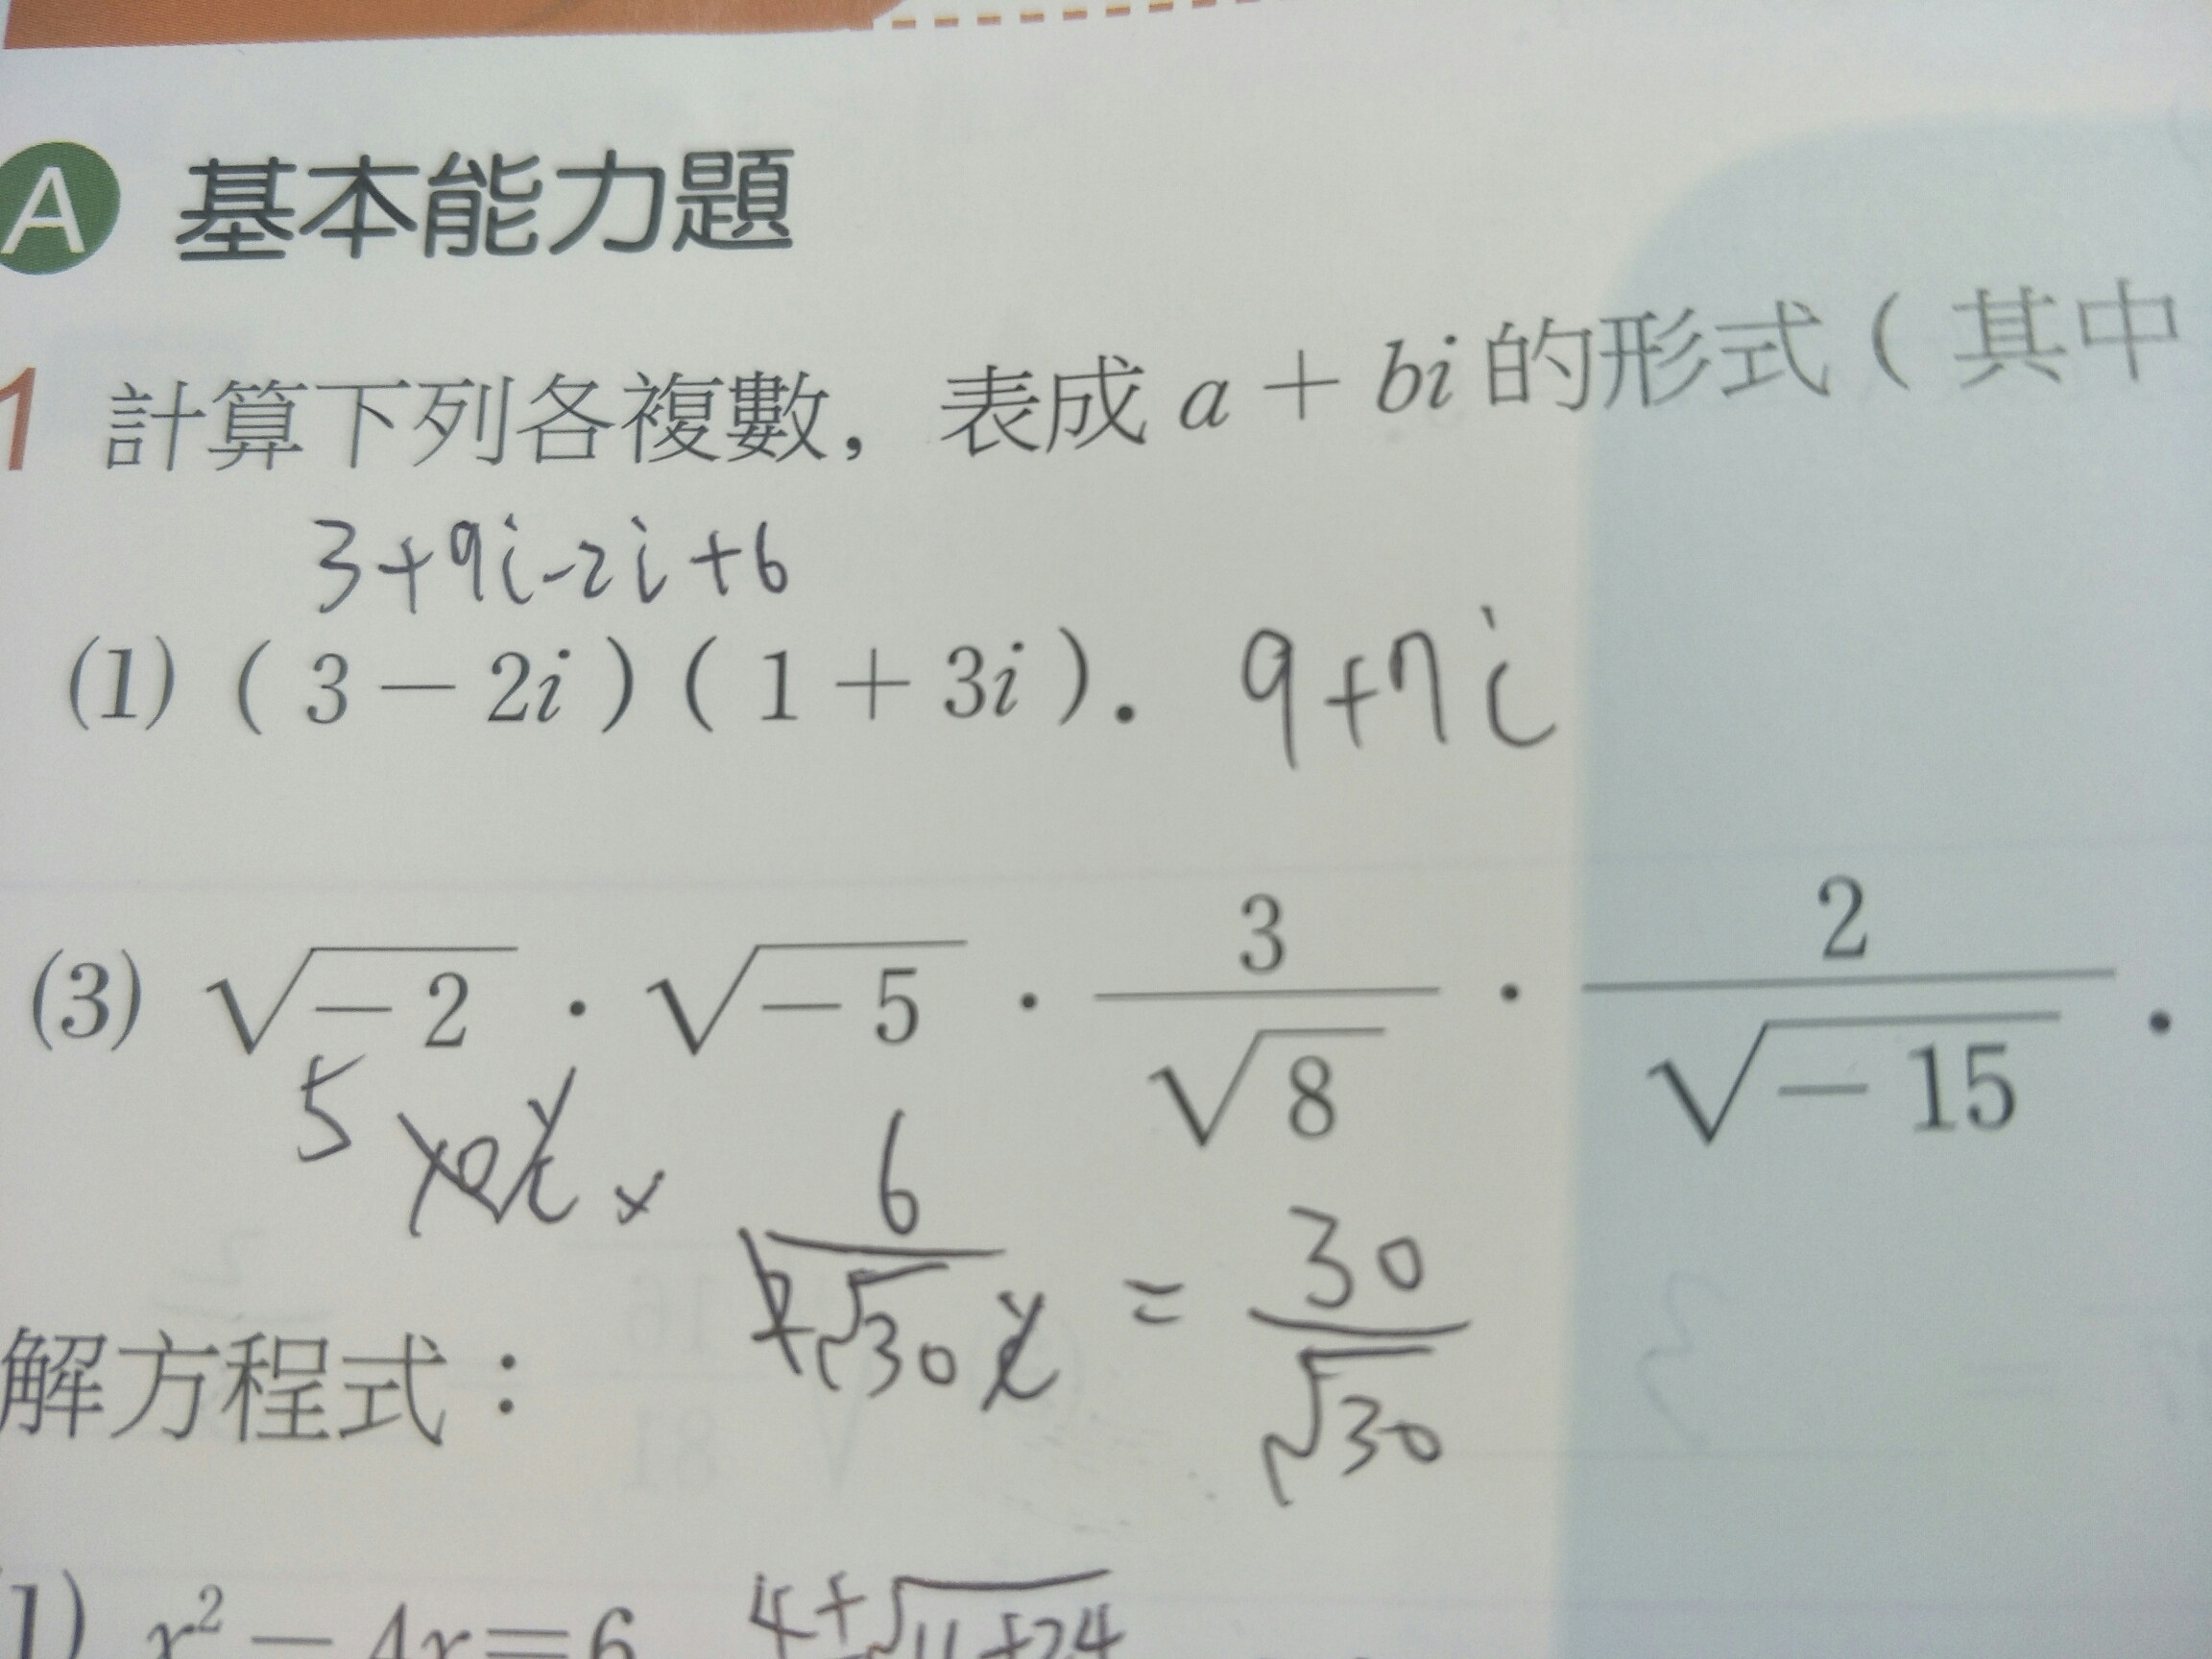 A 基本能力題
1 計算下列各複數，表成 a + bi 的形式（其中
3+9i-2i+6
(1) ( 3 − 2i ) ( 1 + 3i ). 9+7i
(3) √-2 · √-5 · 3/√8 · 2/√-15 .
5 × 6/√30 = 30/√30
解方程式：
(1) x² − 4x = 6 4+√